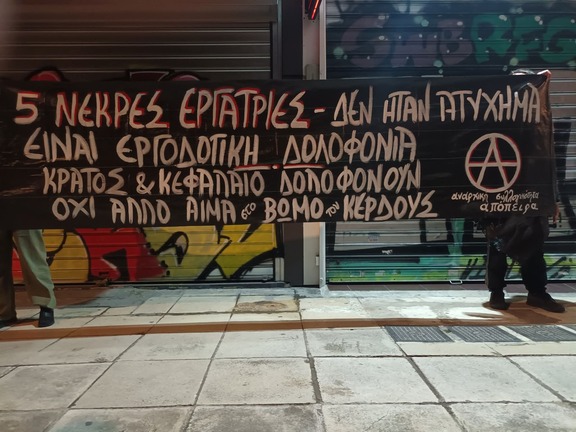 5 ΝΕΚΡΕΣ ΕΡΓΑΤΡΙΕΣ - ΔΕΝ ΗΤΑΝ ΑΤΥΧΗΜΑ
ΕΙΝΑΙ ΕΡΓΟΔΟΤΙΚΗ ΔΟΛΟΦΟΝΙΑ
ΚΡΑΤΟΣ & ΚΕΦΑΛΑΙΟ ΔΟΛΟΦΟΝΟΥΝ
ΟΧΙ ΑΛΛΟ ΑΙΜΑ στο ΒΩΜΟ του ΚΕΡΔΟΥΣ
αναρχική συλλογικότητα
απόπειρα